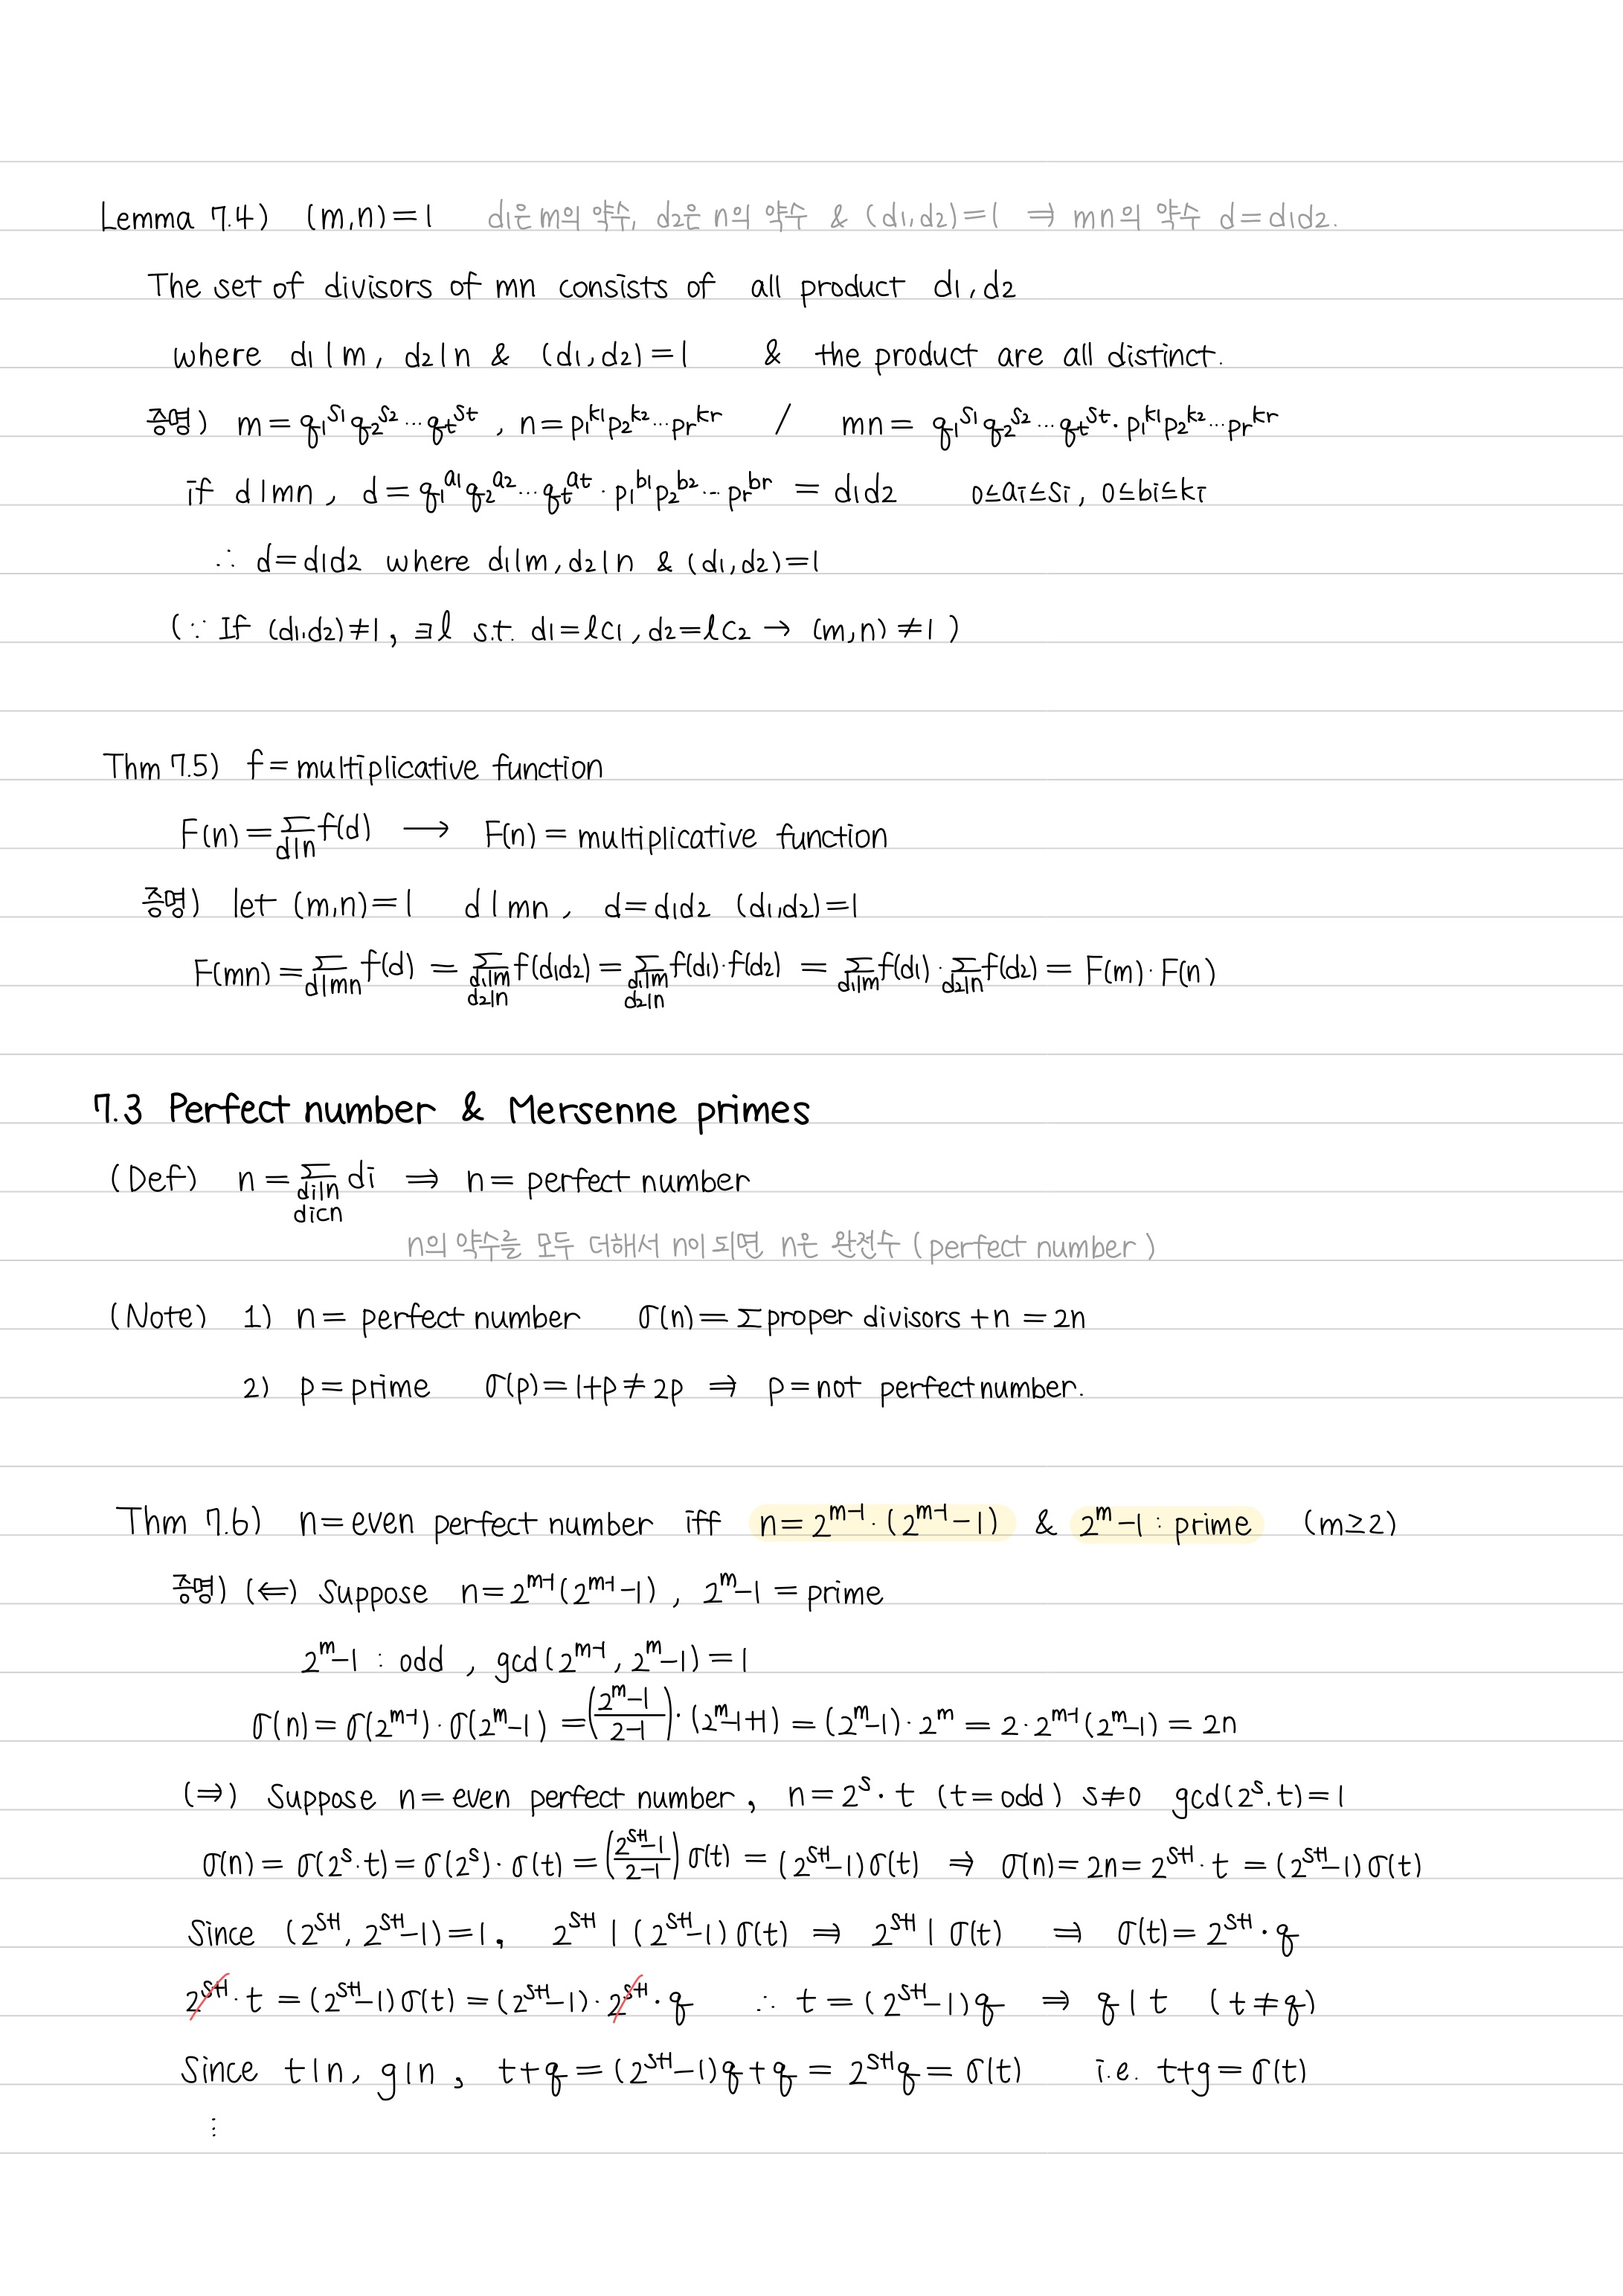 Lemma 7.4) (m,n)=1 d₁은 m의 약수, d₂은 n의 약수 & (d₁,d₂)=1 ⇒ mn의 약수 d=d₁d₂.
The set of divisors of mn consists of all product d₁,d₂
where d₁|m, d₂|n & (d₁,d₂)=1 & the product are all distinct.
증명) m=q₁^s₁ q₂^s₂ ⋯ qt^st , n=p₁^k₁ p₂^k₂ ⋯ pr^kr / mn= q₁^s₁ q₂^s₂ ⋯ qt^st · p₁^k₁ p₂^k₂ ⋯ pr^kr
if d|mn, d=q₁^a₁ q₂^a₂ ⋯ qt^at · p₁^b₁ p₂^b₂ ⋯ pr^br = d₁d₂ 0≤ai≤si, 0≤bi≤ki
∴ d=d₁d₂ where d₁|m, d₂|n & (d₁,d₂)=1
(∵ If (d₁,d₂)≠1, ∃ℓ s.t. d₁=ℓc₁, d₂=ℓc₂ → (m,n)≠1 )
Thm 7.5) f=multiplicative function
F(n)=Σ_{d|n} f(d) → F(n)= multiplicative function
증명) let (m,n)=1 d|mn, d=d₁d₂ (d₁,d₂)=1
F(mn)=Σ_{d|mn} f(d) = Σ_{d₁|m d₂|n} f(d₁d₂) = Σ_{d₁|m d₂|n} f(d₁)·f(d₂) = Σ_{d₁|m} f(d₁)·Σ_{d₂|n} f(d₂) = F(m)·F(n)
7.3 Perfect number & Mersenne primes
(Def) n=Σ_{di|n di<n} di ⇒ n= perfect number
n의 약수를 모두 더해서 n이 되면 n은 완전수 (perfect number)
(Note) 1) n= perfect number σ(n)=Σproper divisors+n=2n
2) p=prime σ(p)=1+p≠2p ⇒ p=not perfect number.
Thm 7.6) n=even perfect number iff n=2^{m-1}·(2^{m-1}-1) & 2^m-1 : prime (m≥2)
증명) (⇐) Suppose n=2^{m-1}(2^{m-1}-1), 2^m-1=prime
2^m-1 : odd, gcd(2^{m-1}, 2^m-1)=1
σ(n)=σ(2^{m-1})·σ(2^m-1)=((2^m-1)/(2-1))·(2^m-1+1)=(2^m-1)·2^m=2·2^{m-1}(2^m-1)=2n
(⇒) Suppose n=even perfect number, n=2^s·t (t=odd) s≠0 gcd(2^s.t)=1
σ(n)=σ(2^s·t)=σ(2^s)·σ(t)=((2^{s+1}-1)/(2-1))σ(t)=(2^{s+1}-1)σ(t) ⇒ σ(n)=2n=2^{s+1}·t=(2^{s+1}-1)σ(t)
Since (2^{s+1}, 2^{s+1}-1)=1, 2^{s+1}|(2^{s+1}-1)σ(t) ⇒ 2^{s+1}|σ(t) ⇒ σ(t)=2^{s+1}·q
2^{s+1}·t=(2^{s+1}-1)σ(t)=(2^{s+1}-1)·2^{s+1}·q ∴ t=(2^{s+1}-1)q ⇒ q|t (t≠q)
Since t|n, g|n, t+q=(2^{s+1}-1)q+q=2^{s+1}q=σ(t) i.e. t+g=σ(t)
⋮